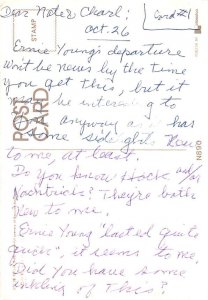 Dear Note & Charl:
Card #1
Oct. 26
Ernie Young's departure
won't be news by the time
you get this, but it
may be interesting to
you anyway as it has
some side glints New
to me, at least.
Do you know Hock and
Nachtrieb? They're both
New to me.
Ernie Young "lasted quite
awhile", it seems to me.
Did you have some
inkling of this?
STAMP
POST
CARD
N890